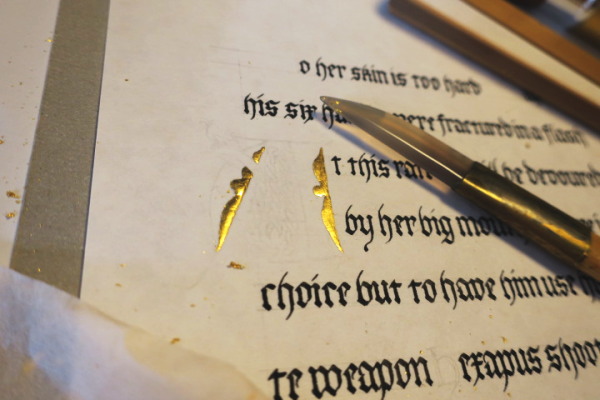 o her skin is too hard
his six were fractured in a flash
t this will be devoured
by her big
choice but to have him use
te weapon exapus shoo